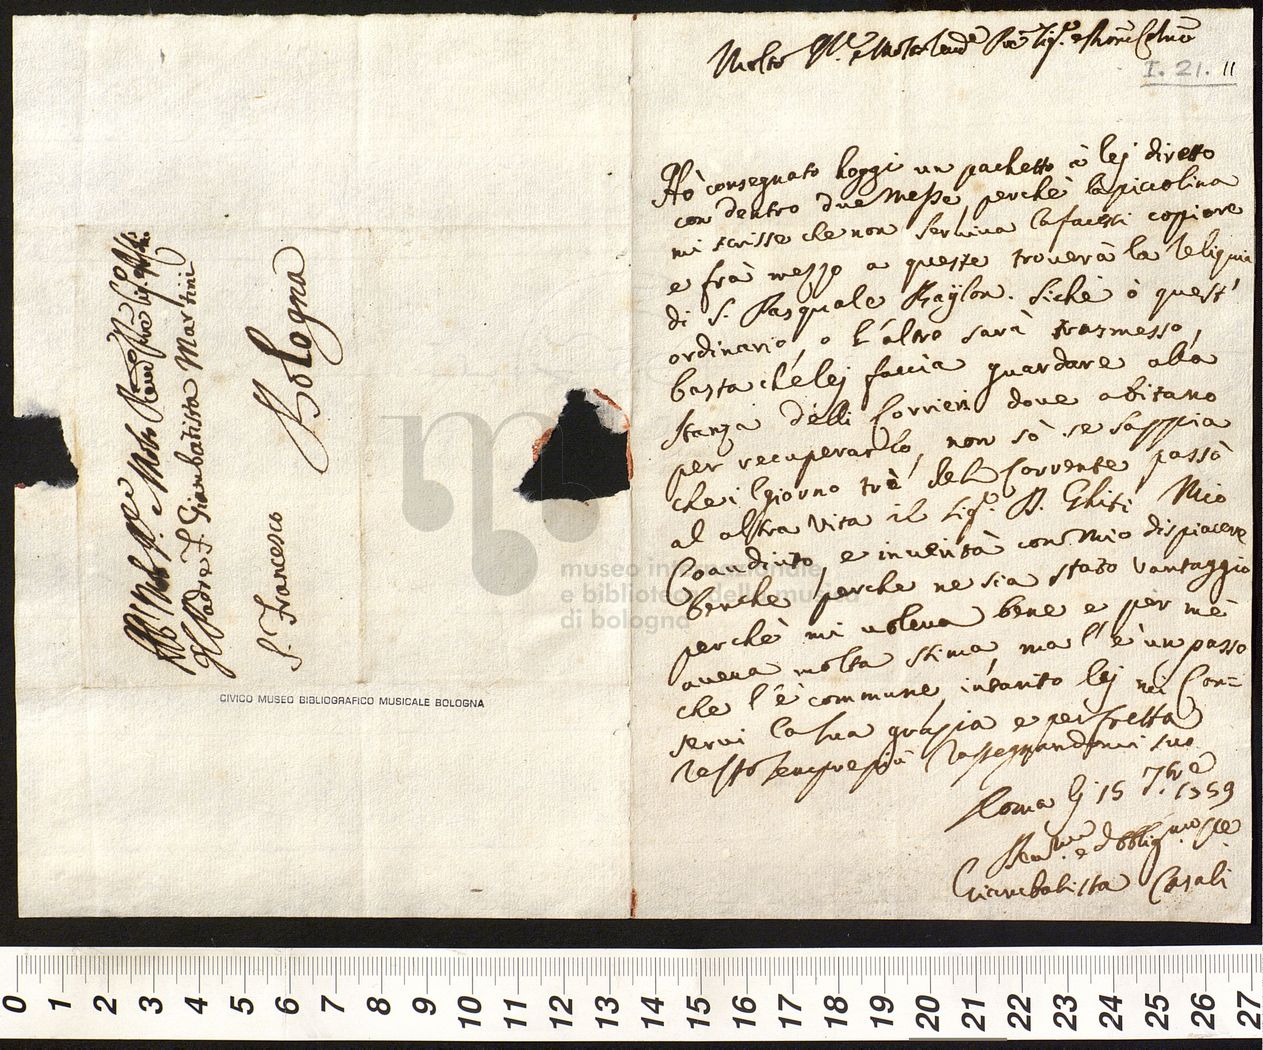 All Molto Ill.re e Molto Rend.o
Il Padre F. Giambatista Martini
S. Francesco
Bologna
CIVICO MUSEO BIBLIOGRAFICO MUSICALE BOLOGNA
museo internazionale
e biblioteca della musica
di bologna
Molto Ill.re e Molto Rend.e
I. 21. 11
Hò consegnato hoggi un pachetto à lej diretto
con dentro due Messe, perchè la piccolina
mi scrisse che non serviva la facessi copiare
e frà mezzo a queste troverà la Reliquia
di S. Pasquale Baylon. Sichè ò quest'
ordinario, o l'altro sarà trasmesso,
basta che lej faccia guardare alla
stanza delli Corrieri dove abitano
per recuperarlo, non sò se sappia
che il giorno trè del Corrente passò
al altra Vita il Sig.r D. Ghiti Mio
Coaudiuto, e inverità con Mio dispiacere
benche perche ne sia stato vantaggio
perchè mi voleva bene e per mè
aveva molta stima, ma l'è un passo
che l'è commune, intanto lej mi Con=
servi la sua grazia e perfretta
resto sempre più rassegnandomi suo
Roma li 15 7bre 1759
Giambatista Casali
0 1 2 3 4 5 6 7 8 9 10 11 12 13 14 15 16 17 18 19 20 21 22 23 24 25 26 27